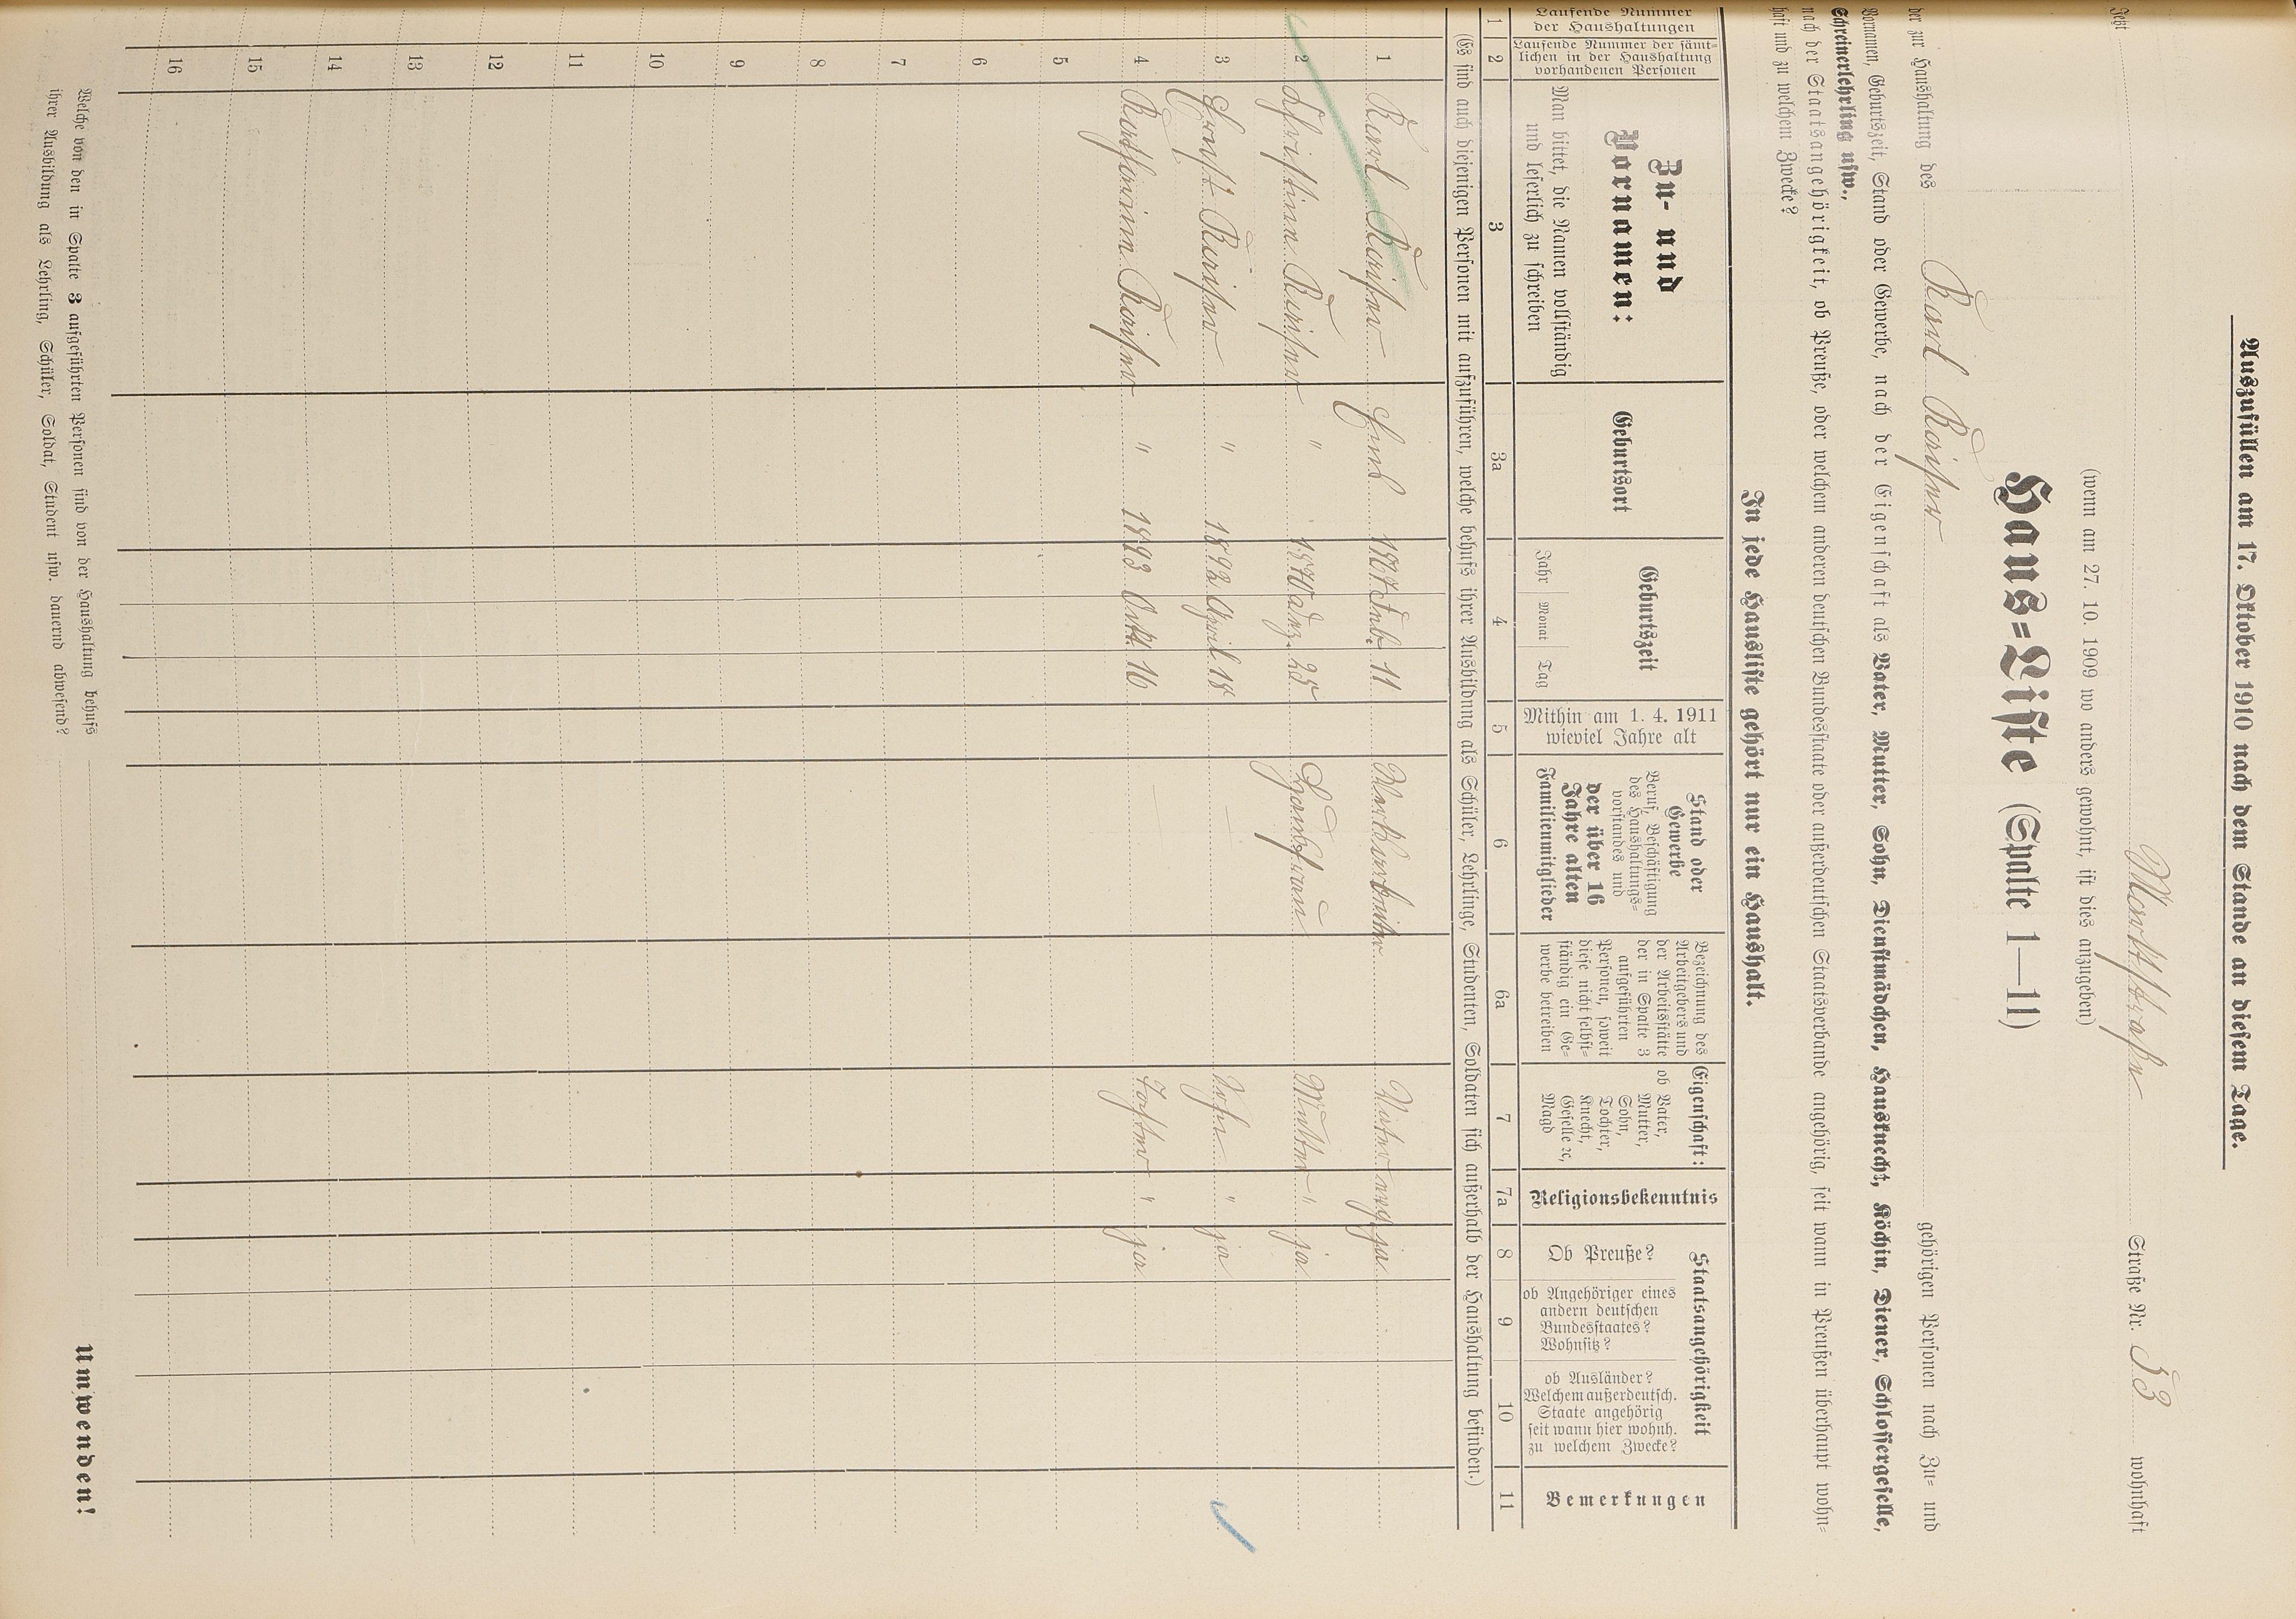 Auszufüllen am 17. Oktober 1910 nach dem Stande an diesem Tage.
Jetzt Marktstraße Straße Nr. 53 wohnhaft
(wenn am 27. 10. 1909 wo anders gewohnt, ist dies anzugeben)
Haus=Liste (Spalte 1—11)
der zur Haushaltung des Karl gehörigen Personen nach Zu= und
Vornamen, Geburtszeit, Stand oder Gewerbe, nach der Eigenschaft als Vater, Mutter, Sohn, Dienstmädchen, Hausknecht, Köchin, Diener, Schlossergeselle,
Schreinerlehrling usw.,
nach der Staatsangehörigkeit, ob Preuße, oder welchem anderen deutschen Bundesstaate oder außerdeutschen Staatsverbande angehörig, seit wann in Preußen überhaupt wohn=
haft und zu welchem Zwecke?
In jede Hausliste gehört nur ein Haushalt.
Laufende Nummer
der Haushaltungen
Laufende Nummer der sämt=
lichen in der Haushaltung
vorhandenen Personen
Zu- und
Vornamen:
Man bittet, die Namen vollständig
und leserlich zu schreiben
Geburtsort
Geburtszeit
Jahr Monat Tag
Mithin am 1. 4. 1911
wieviel Jahre alt
Stand oder
Gewerbe
Beruf, Beschäftigung
des Haushaltungs=
vorstandes und
der über 16
Jahre alten
Familienmitglieder
Bezeichnung des
Arbeitgebers und
der Arbeitsstätte
der in Spalte 3
aufgeführten
Personen, soweit
diese nicht selbst=
ständig ein Ge=
werbe betreiben
Eigenschaft:
ob Vater,
Mutter,
Sohn,
Tochter,
Knecht,
Geselle ꝛc,
Magd
Religionsbekenntnis
Staatsangehörigkeit
Ob Preuße?
ob Angehöriger eines
andern deutschen
Bundesstaates?
Wohnsitz?
ob Ausländer?
Welchem außerdeutsch.
Staate angehörig
seit wann hier wohnh.
zu welchem Zwecke?
Bemerkungen
1 2 3 3a 4 5 6 6a 7 7a 8 9 10 11
(Es sind auch diejenigen Personen mit aufzuführen, welche behufs ihrer Ausbildung als Schüler, Lehrlinge, Studenten, Soldaten sich außerhalb der Haushaltung befinden.)
1 Karl 11 Vater evg. ja
2 Christine " 25 Hausfrau Mutter " ja
3 Ernst " 1892 April 18 Sohn " ja
4 " 1893 16 Tochter " ja
5
6
7
8
9
10
11
12
13
14
15
16
Welche von den in Spalte 3 aufgeführten Personen sind von der Haushaltung behufs
ihrer Ausbildung als Lehrling, Schüler, Soldat, Student usw. dauernd abwesend?
Umwenden!